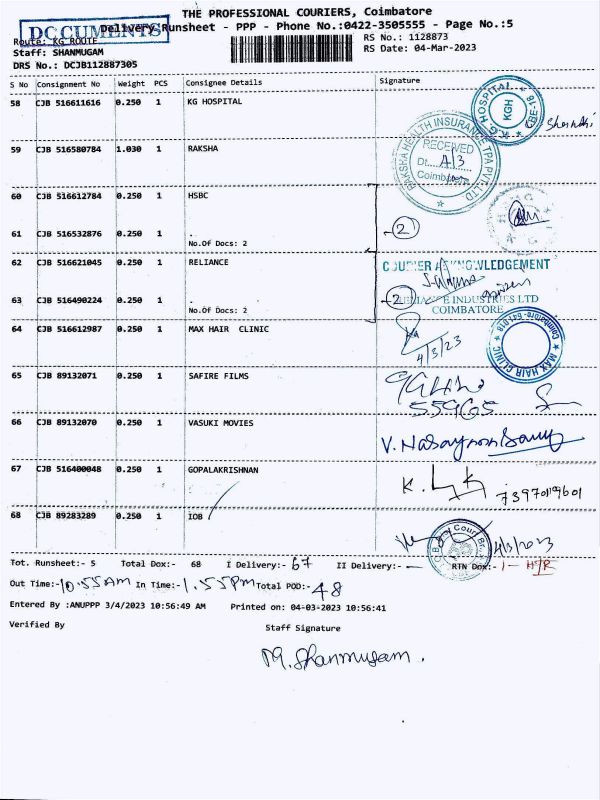 THE PROFESSIONAL COURIERS, Coimbatore
DOCUMENTS
Delivery Runsheet - PPP - Phone No.:0422-3505555 - Page No.:5
Route: KG ROUTE
RS No.: 1128873
Staff: SHANMUGAM
RS Date: 04-Mar-2023
DRS No.: DCJB112887305
S No Consignment No Weight PCS Consignee Details Signature
58 CJB 516611616 0.250 1 KG HOSPITAL
K.G. HOSPITAL
KGH
CBE-18
59 CJB 516580784 1.030 1 RAKSHA
RAKSHA HEALTH INSURANCE TPA PVT. LTD
RECEIVED
Dt. 4/3
Coimbatore
60 CJB 516612784 0.250 1 HSBC
2
61 CJB 516532876 0.250 1 .
No.Of Docs: 2
62 CJB 516621045 0.250 1 RELIANCE
COURIER ACKNOWLEDGEMENT
2
RELIANCE INDUSTRIES LTD
COIMBATORE
63 CJB 516490224 0.250 1 .
No.Of Docs: 2
64 CJB 516612987 0.250 1 MAX HAIR CLINIC
4/3/23
MAX HAIR CLINIC
Coimbatore-641 018
65 CJB 89132071 0.250 1 SAFIRE FILMS
55965
66 CJB 89132070 0.250 1 VASUKI MOVIES
67 CJB 516400048 0.250 1 GOPALAKRISHNAN
68 CJB 89283289 0.250 1 IOB
4/3/2023
Tot. Runsheet:- 5 Total Dox:- 68 I Delivery:- 67 II Delivery:- — RTN Dox:- 1 —
Out Time:- 10.55AM In Time:- 1.55PM Total POD:- 48
Entered By :ANUPPP 3/4/2023 10:56:49 AM Printed on: 04-03-2023 10:56:41
Verified By Staff Signature
M. Shanmugam.